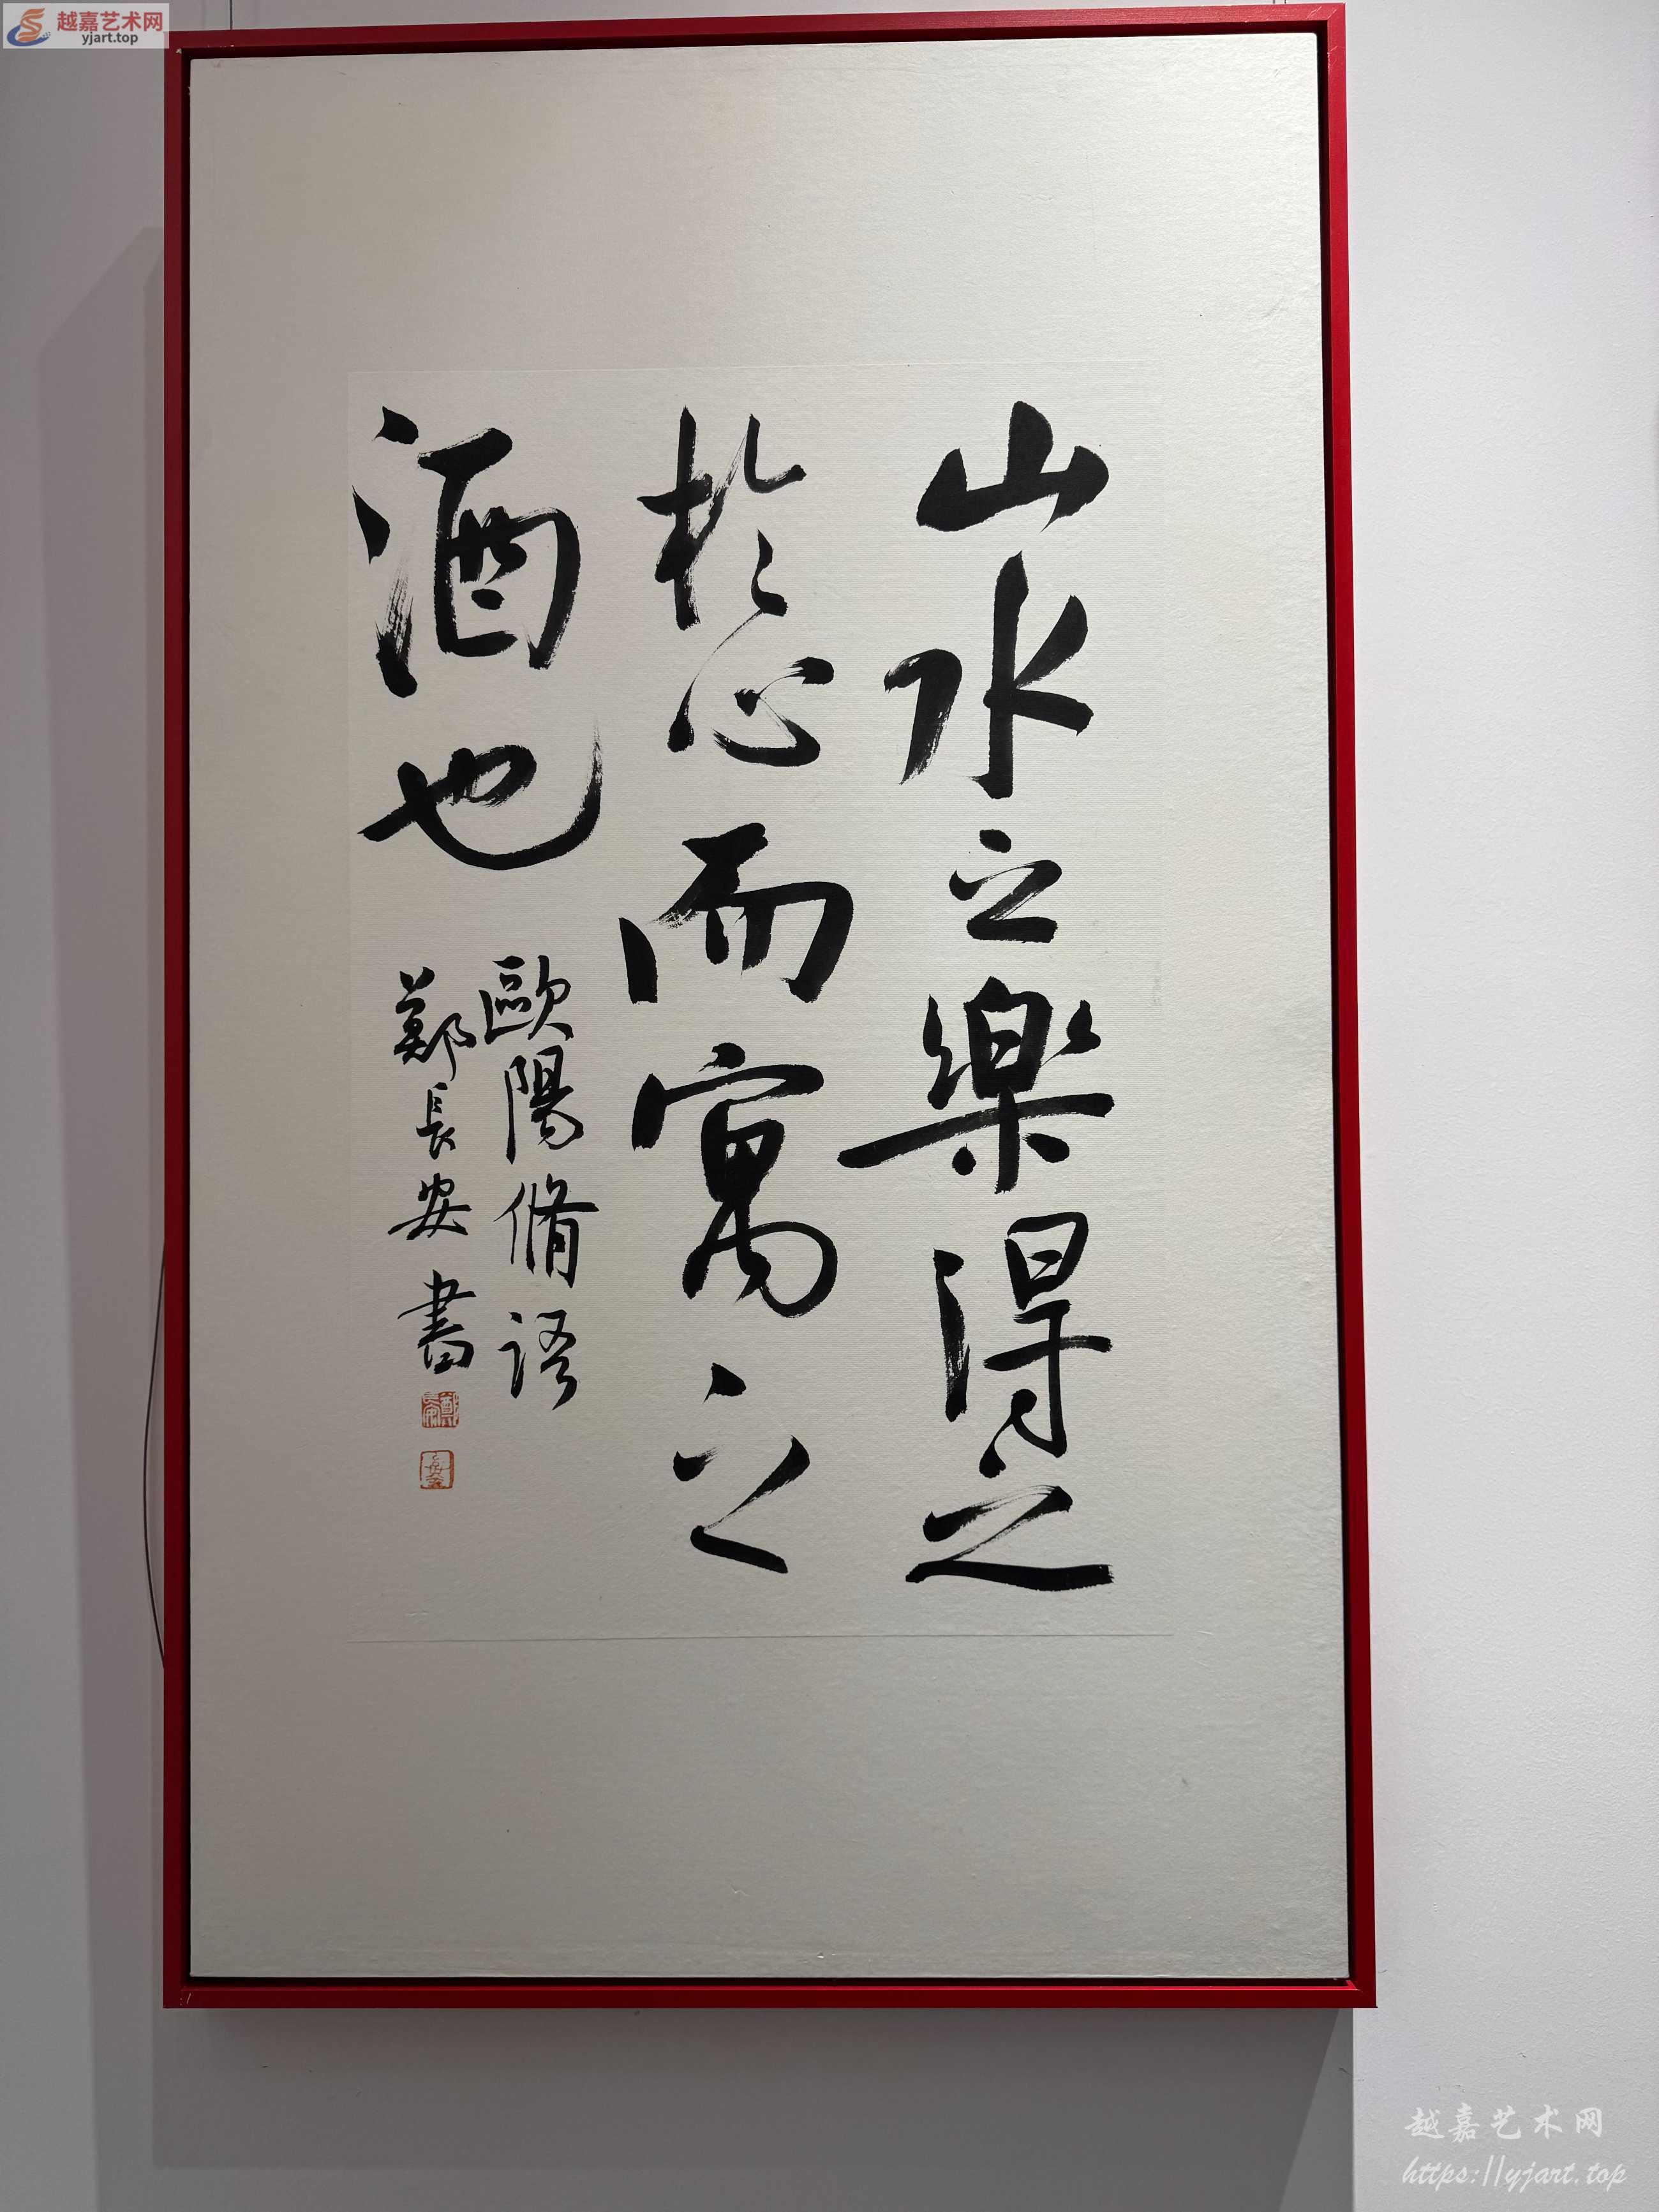 越嘉艺术网
yjart.top
山水之樂得之
於心而寓之
酒也
歐陽脩語
鄭長安書
鄭長安
越嘉艺术网
https://yjart.top